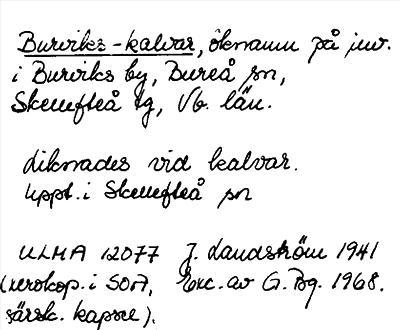 Burviks-kalvar, öknamn på inv.
i Burviks by, Bureå sn,
Skellefteå tg, Vb. län.
Liknades vid kalvar.
Uppt. i Skellefteå sn
ULMA 12077 J. Landström 1941
(xerokop. i SOA, Exc. av G. Bg. 1968.
särsk. kapsel).